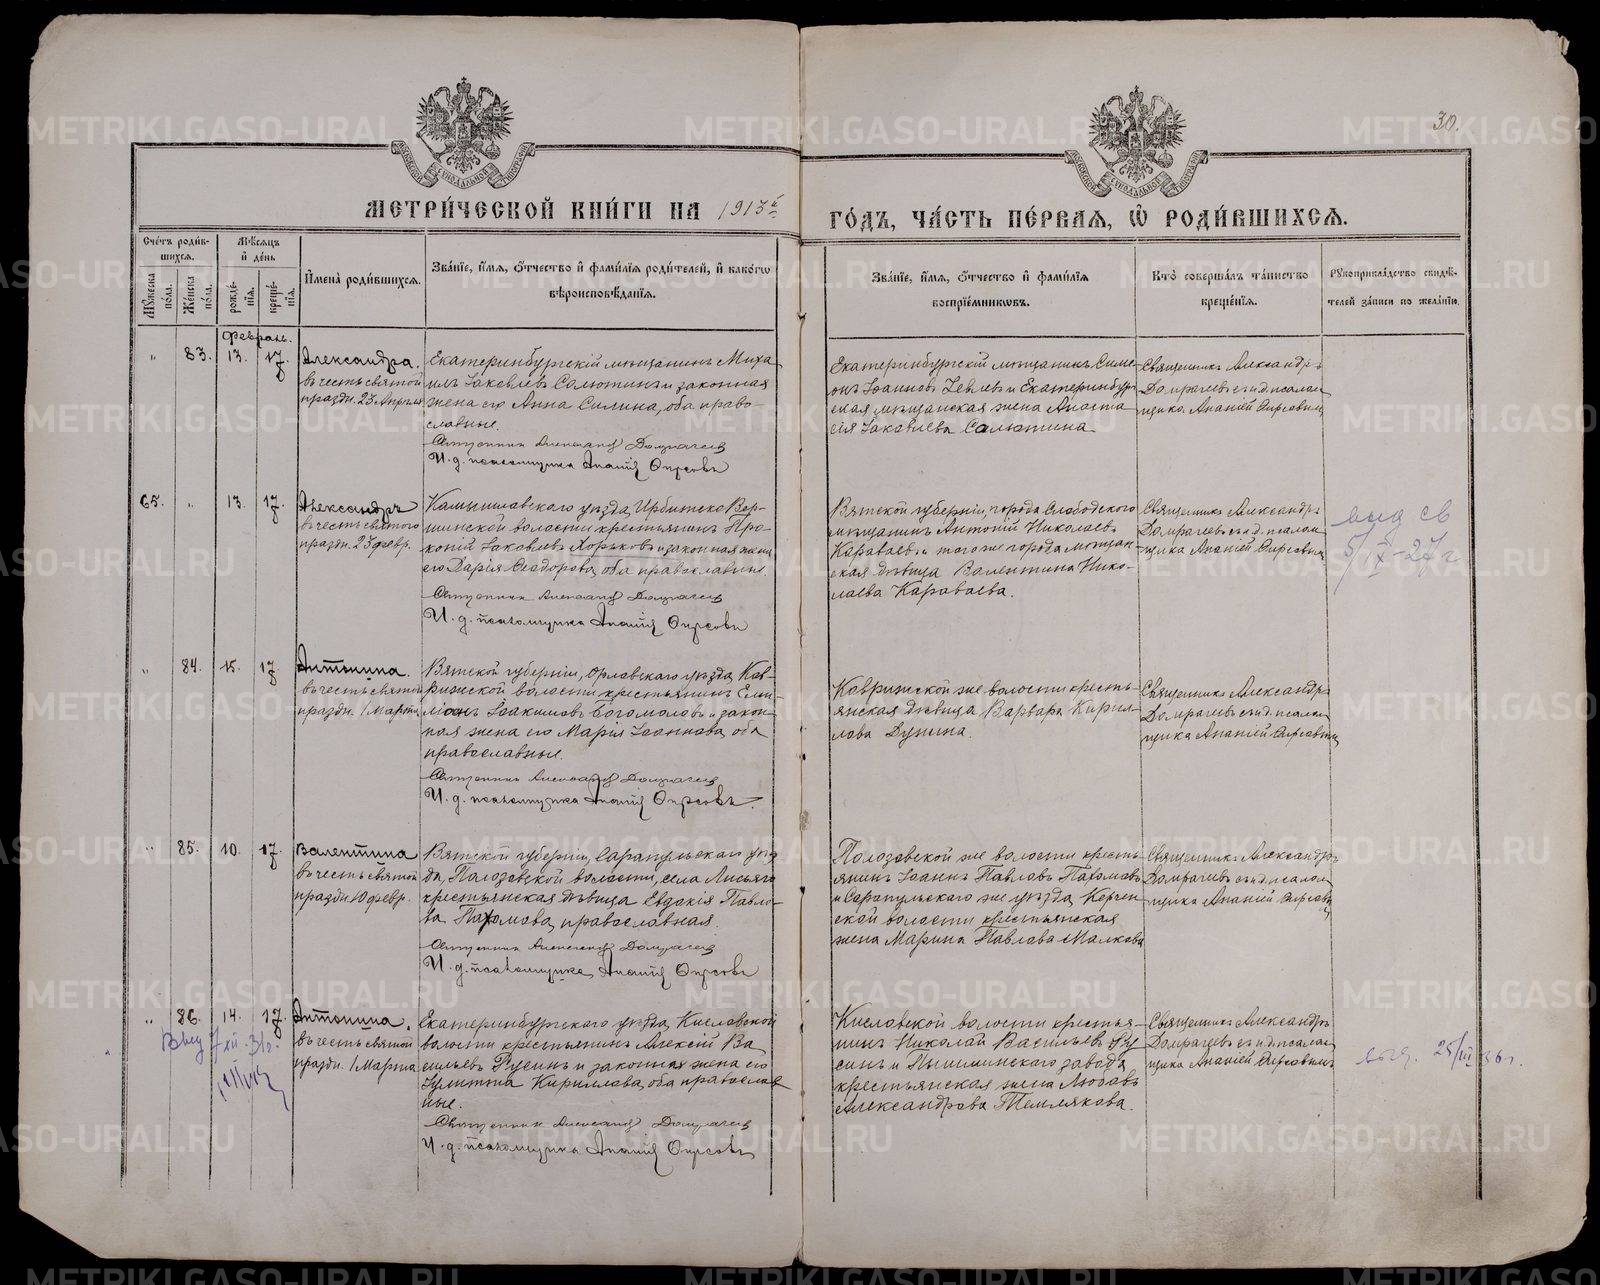 30.
МЕТРИЧЕСКОЙ КНИГИ НА 1913й ГОДЪ, ЧАСТЬ ПЕРВАЯ, Ѡ РОДИВШИХСЯ.
Счетъ родив-
шихся.
Мѣсяцъ
и день
Мужеска
пола.
Женска
пола.
рожде-
нія.
креще-
нія.
Имена родившихся.
Званіе, имя, отчество и фамилія родителей, и какогѡ
вѣроисповѣданія.
Званіе, имя, отчество и фамилія
воспріемникѡвъ.
Кто совершалъ таинство
крещенія.
Рукоприкладство свидѣ-
телей записи по желанію.
Февраль.
" 83. 13. 17.
Александра.
въ честь святой
праздн. 23 Апрѣля
Екатеринбургскій мѣщанинъ Миха-
илъ Іаковлевъ Салютинъ и законная
жена его Анна Силина, оба право-
славные.
Священникъ Александръ Домрачевъ
И. д. псаломщика Ананій Фирсовъ
Екатеринбургскій мѣщанинъ Симе-
онъ Іоанновъ
и Екатеринбург-
ская мѣщанская жена Анаста-
сія Іаковлева Салютина
Священникъ Александръ
Домрачевъ съ и.д. псалом-
щика Ананій Фирсовым
65. " 13. 17.
Александръ
въ честь святого
праздн. 23 февр.
Камышловскаго уѣзда, Ирбитско-Вер-
шинской волости крестьянинъ Про-
копій Іаковлевъ Хорьковъ и законная жена
его Дарія Ѳеодорова, оба православные.
Священникъ Александръ Домрачевъ
И. д. псаломщика Ананій Фирсовъ
Вятской губерніи, города Слободского
мѣщанинъ Антоній Николаевъ
Караваевъ и того же города мѣщан-
ская дѣвица Валентина Нико-
лаева Караваева.
Священникъ Александръ
Домрачевъ съ и.д. псалом
щика Ананій Фирсовым
выд св
5/IX-27г
" 84. 15. 17.
Антонина.
въ честь святой
праздн. 1 Марта
Вятской губерніи, Орловскаго уѣзда, Кав-
рижской волости крестьянинъ Еми-
ліанъ Іоакимовъ Богомоловъ и закон-
ная жена его Марія Іоаннова, оба
православные.
Священникъ Александръ Домрачевъ
И. д. псаломщика Ананій Фирсовъ.
Каврижской же волости кресть-
янская дѣвица Варвара Кирил-
лова Дунина.
Священникъ Александръ
Домрачевъ съ и.д. псалом
щика Ананій Фирсовым
" 85. 10. 17.
Валентина
въ честь святой
праздн. 10 февр.
Вятской губерніи, Сарапульскаго уѣз-
да, Полозовской волости, села Лисьяго
крестьянская дѣвица Евдокія Павло-
ва Пахомова, православная.
Священникъ Александръ Домрачевъ
И. д. псаломщика Ананій Фирсовъ
Полозовской же волости кресть-
янинъ Іоаннъ Павловъ Пахомовъ
и Сарапульскаго же уѣзда,
ской волости крестьянская
жена Марина Павлова Малкова
Священникъ Александръ
Домрачевъ съ и.д. псалом
щика Ананій Фирсовым
" 86. 14. 17.
Антонина.
въ честь святой
праздн. 1 Марта
Екатеринбургскаго уѣзда, Кисловской
волости крестьянинъ Алексій Ва-
сильевъ Русинъ и законная жена его
Іулитта Кириллова, оба православ-
ные.
Священникъ Александръ Домрачевъ
И. д. псаломщика Ананій Фирсовъ
Кисловской волости крестья-
нинъ Николай Васильевъ Ру-
синъ и Пышминскаго завода
крестьянская жена Любовь
Александрова Темлякова.
Священникъ Александръ
Домрачевъ съ и.д. псалом-
щика Ананій Фирсовымъ
выд. 25/III 36г.
METRIKI.GASO-URAL.RU